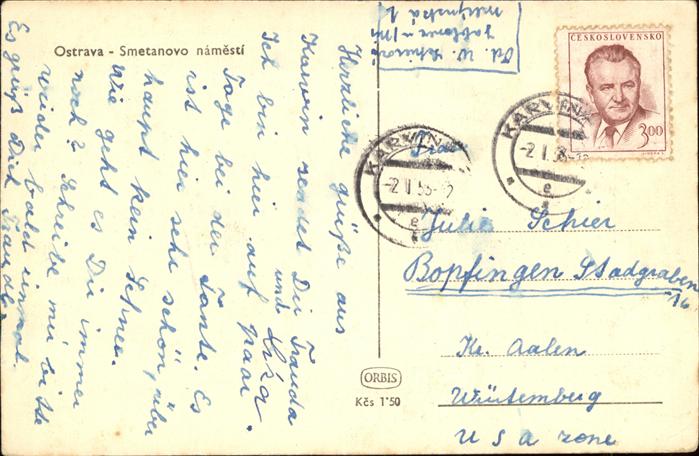 Ostrava - Smetanovo náměstí
Herzliche grüße aus
Karwin sendet Dir Trauda
und
Ich bin hier auf paar
Tage bei der Tante. Es
ist hier sehr schön, über
haupt kein Schnee.
Wie geht es Dir immer
noch? Schreibe mir bitte
wieder bald einmal.
Es grüß Dich Trauda
Jablonec n/N
mlýnská 1.
ČESKOSLOVENSKO
3,00
KARVINÁ
-2.I.55-12
e
KARVINÁ
-2.I.
e
Frau
Julie Schier
Bopfingen Stadgraben
16
Kr. Aalen
Würtemberg
U S A zone
ORBIS
Kčs 1'50